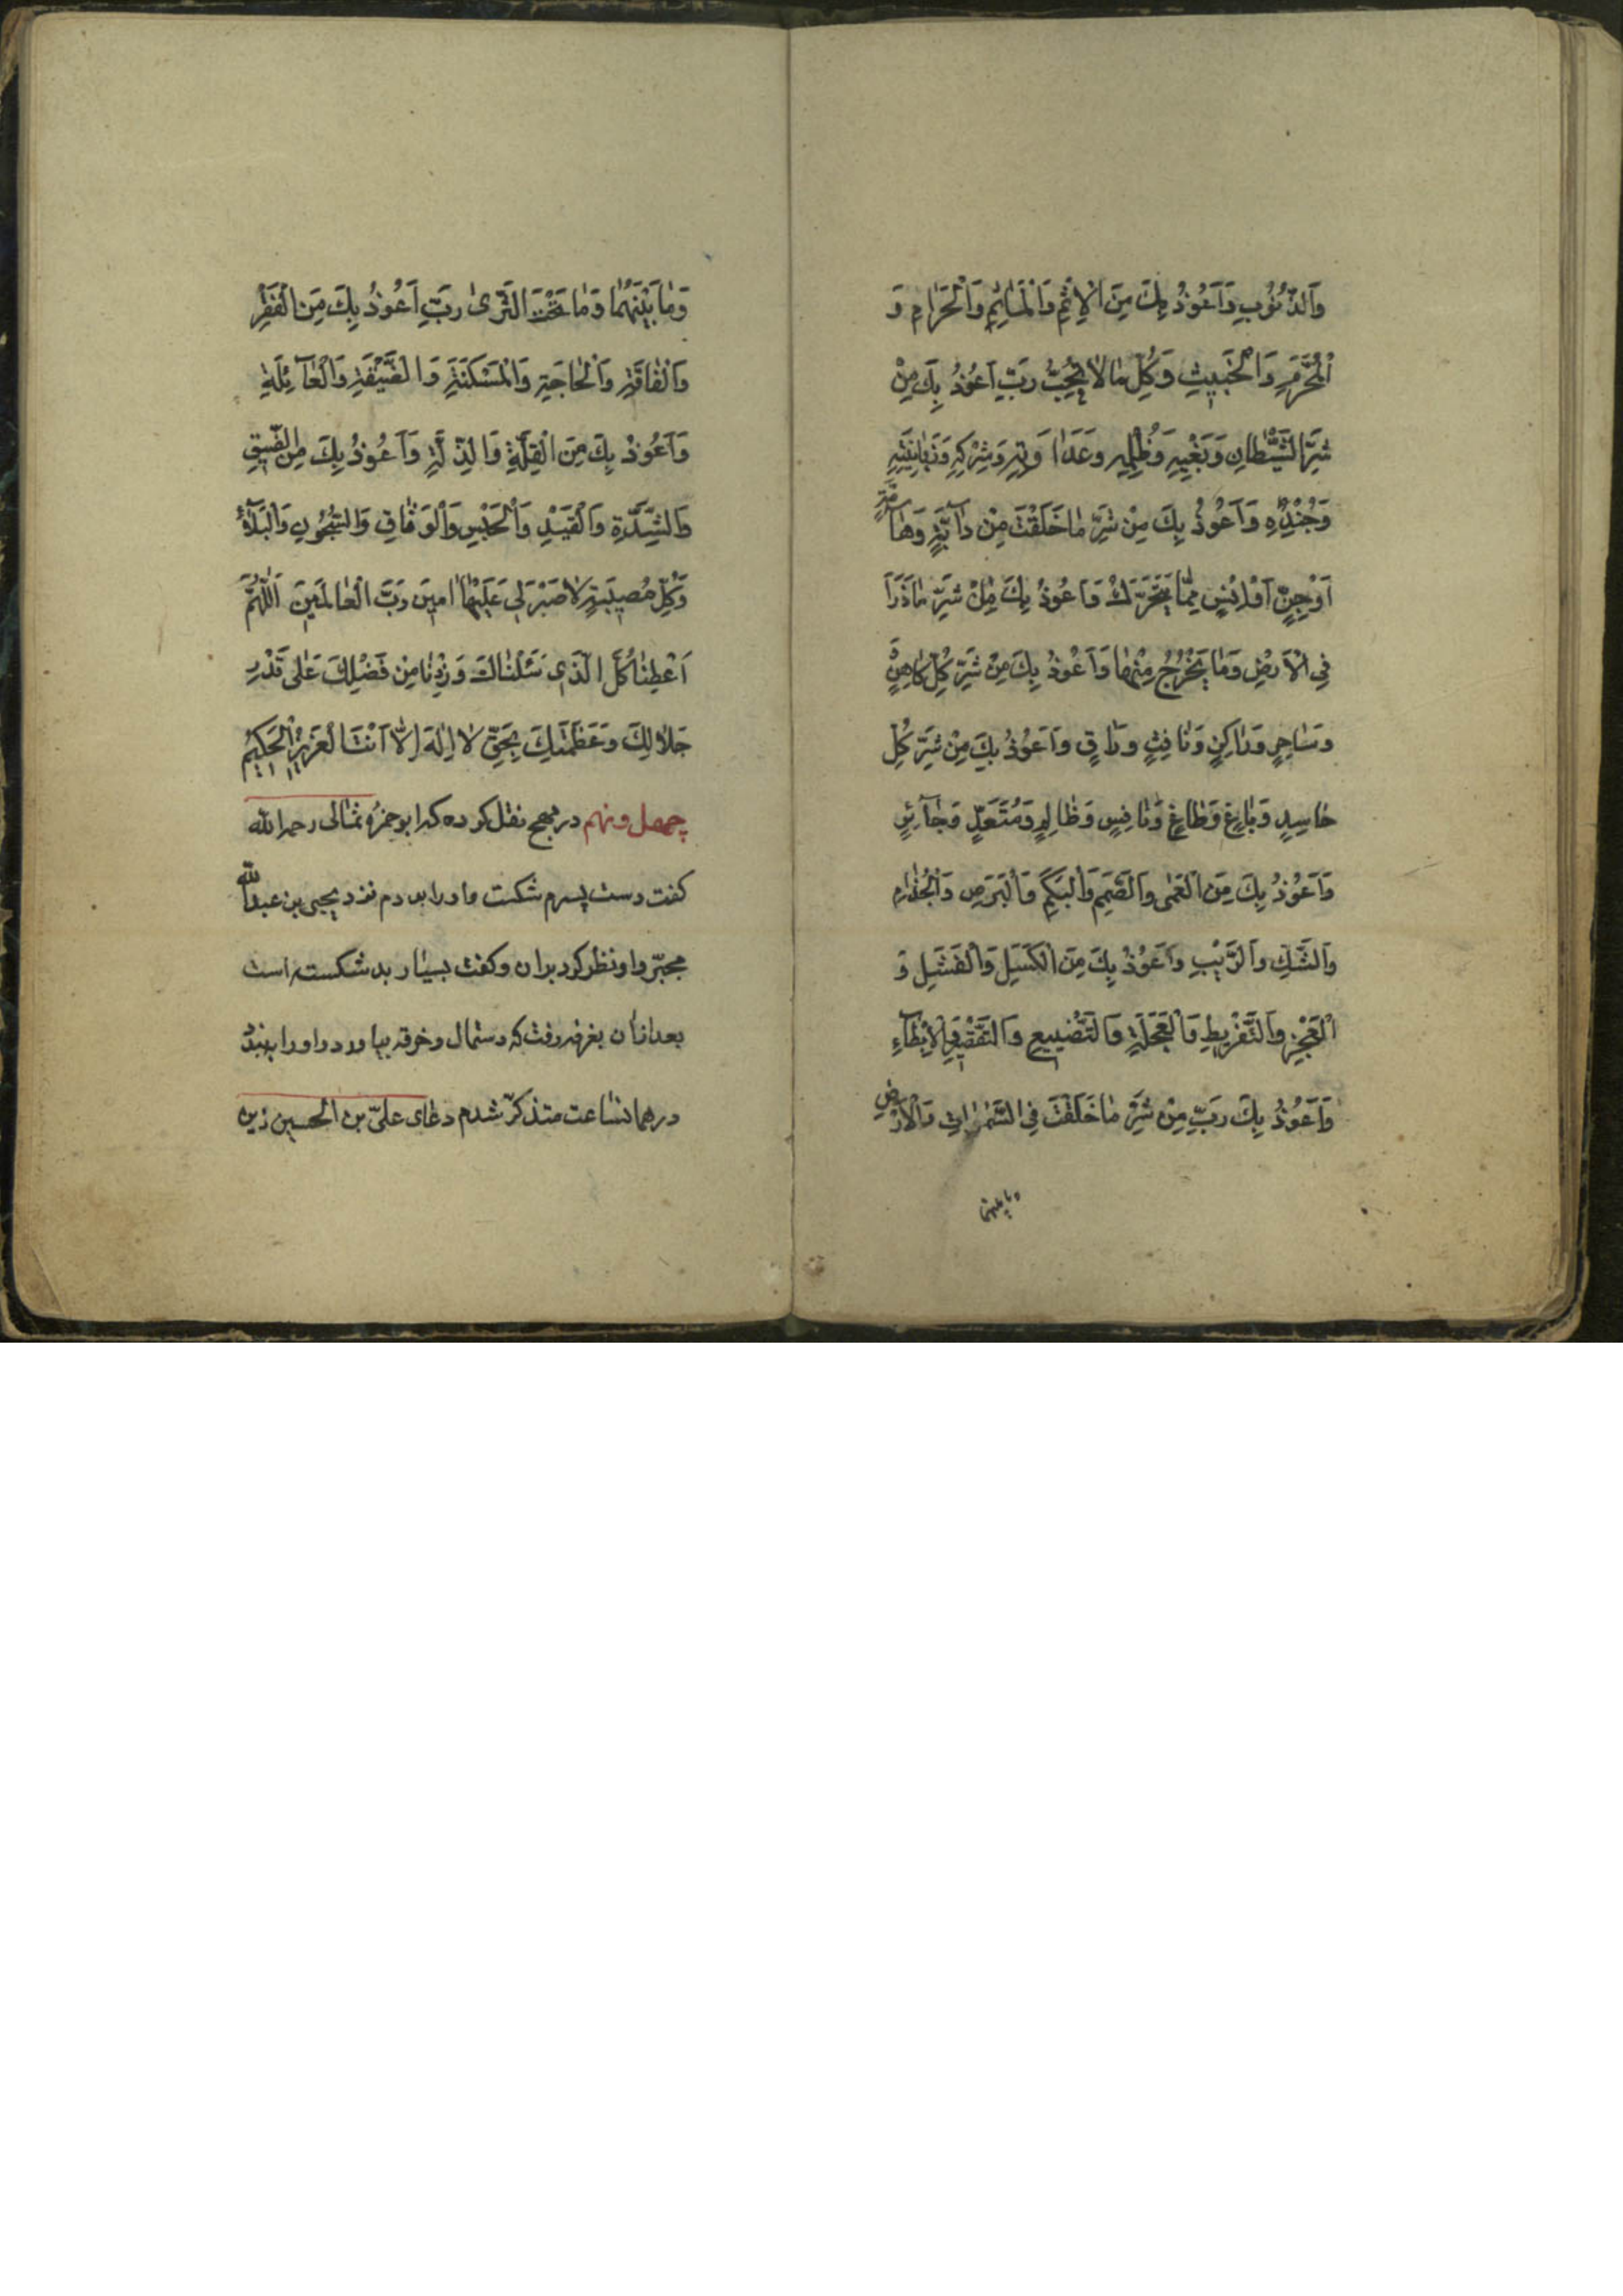 وَالذُّنُوبِ وَاَعُوذُ بِكَ مِنَ الْاِثْمِ وَالْمَاْثَمِ وَالْحَرٰامِ وَ
الْمُحَرَّمِ وَالْخَبيثِ وَكُلِّ مٰا لٰا تُحِبُّ رَبِّ اَعُوذُ بِكَ مِنْ
شَرِّ الشَّيْطٰانِ وَبَغْيِهِ وَظُلْمِهِ وَعَدٰاوَتِهِ وَشِرْكِهِ وَزَبٰانِيَتِهِ
وَجُنْدِهِ وَاَعُوذُ بِكَ مِنْ شَرِّ مٰا خَلَقْتَ مِنْ دٰآبَّةٍ وَهٰآمَّةٍ
اَوْ جِنٍّ اَوْ اِنْسٍ مِمّٰا يَتَحَرَّكُ وَاَعُوذُ بِكَ مِنْ شَرِّ مٰا ذَرَاَ
فِى الْاَرْضِ وَمٰا يَخْرُجُ مِنْهٰا وَاَعُوذُ بِكَ مِنْ شَرِّ كُلِّ كٰاهِنٍ
وَسٰاحِرٍ وَرٰاكِنٍ وَنٰافِثٍ وَرٰاقٍ وَاَعُوذُ بِكَ مِنْ شَرِّ كُلِّ
حٰاسِدٍ وَبٰاغٍ وَطٰاغٍ وَنٰافِسٍ وَظٰالِمٍ وَمُتَعَدٍّ وَجٰآئِرٍ
وَاَعُوذُ بِكَ مِنَ الْعَمٰى وَالصَّمَمِ وَالْبَكَمِ وَالْبَرَصِ وَالْجُذٰامِ
وَالشَّكِّ وَالرَّيْبِ وَاَعُوذُ بِكَ مِنَ الْكَسَلِ وَالْفَشَلِ وَ
الْعَجْزِ وَالتَّفْرِيطِ وَالْعَجَلَةِ وَالتَّضْييعِ وَالتَّقْصيرِ وَالْاِبْطٰآءِ
وَاَعُوذُ بِكَ رَبِّ مِنْ شَرِّ مٰا خَلَقْتَ فِى السَّمٰوٰاتِ وَالْاَرْضِ
وما بينهما
وَمٰا بَيْنَهُمٰا وَمٰا تَحْتَ الثَّرىٰ رَبِّ اَعُوذُ بِكَ مِنَ الْفَقْرِ
وَالْفٰاقَةِ وَالْحٰاجَةِ وَالْمَسْكَنَةِ وَالضَّيْقَةِ وَالْعٰآئِلَةِ
وَاَعُوذُ بِكَ مِنَ الْقِلَّةِ وَالذِّلَّةِ وَاَعُوذُ بِكَ مِنَ الضّيقِ
وَالشِّدَّةِ وَالْقَيْدِ وَالْحَبْسِ وَالْوَثٰاقِ وَالسُّجُونِ وَالْبَلٰآءِ
وَكُلِّ مُصيبَةٍ لٰا صَبْرَ لى عَلَيْهٰا امينَ رَبَّ الْعٰالَمينَ اَللّٰهُمَّ
اَعْطِنٰا كُلَّ الَّذى سَئَلْنٰاكَ وَزِدْنٰا مِنْ فَضْلِكَ عَلٰى قَدْرِ
جَلٰالِكَ وَعَظَمَتِكَ بِحَقِّ لٰا اِلٰهَ اِلّٰا اَنْتَ الْعَزيزُ الْحَكيمُ
چهل و نهم در مهج نقل كرده كه ابو حمزهٔ ثمالى رحمه الله
كفت دست پسرم شكست و او را بردم نزد يحيى بن عبدالله
مجبّر و او نظر كرد بر ان وكفت بسيار بد شكسته است
بعد از ان بغرفه رفت كه دستمال و خرقه بياورد و او را ببندد
در همانساعت متذكّر شدم دعاى علىّ بن الحسين زين